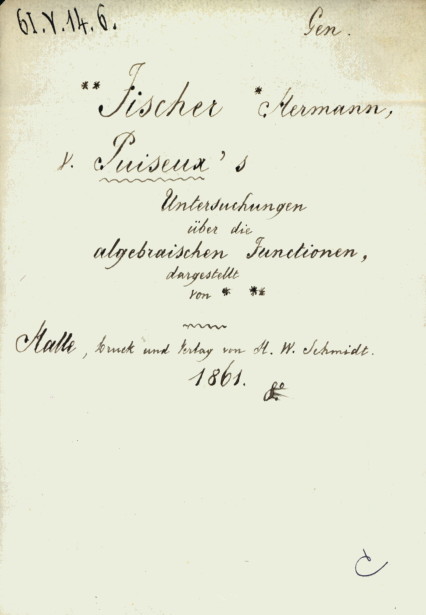 61.V.14.6.
Gen.
** Fischer * Hermann,
v. Puiseux's
Untersuchungen
über die
algebraischen Functionen,
dargestellt
von * **
Halle, Druck und Verlag von H. W. Schmidt.
1861. 8º
C